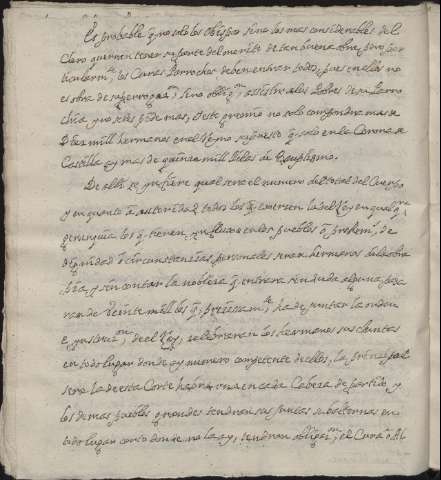 Es probable q no solo los Obispos sino los mas considerables del
Clero querran tener su parte del merito de tan buena obra, pero par
ticularmte los Curas Parrochos deben entrar todos, pues en ellos no
es obra de supererogaon, sino obligon assistir a los Pobres de su Parro
chia, y no seles pide mas, y este gremio no solo compondra mas de
Diez mill hermanos en el Reyno supuesto q solo en la Corona de
Castilla ay mas de quinze mill Pilas de Baptismo.
De ellos se infiere qual sera el numero del total del Cuerpo
y en quanto a autoridad todos los q exercen la del Rey en qualqra
los q tienen influxo en los pueblos q proviene de
Dignidad o circunstancias personales seran hermanos del obra
pia, y sin contar la nobleza q entrara sin duda alguna, pasa
ran de veinte mill los q precisamte ha de juntar la orden
e insinuaon de el Rey, y celebraran los hermanos sus Juntas
en todo lugar donde ay numero competente de ellos, la principal
sera la de esta Corte habra una en cada Cabeza de partido y
los demas pueblos grandes tendran sus Juntas subalternas en
todo lugar corto donde no la ay, tendran obligaon el Cura o Al